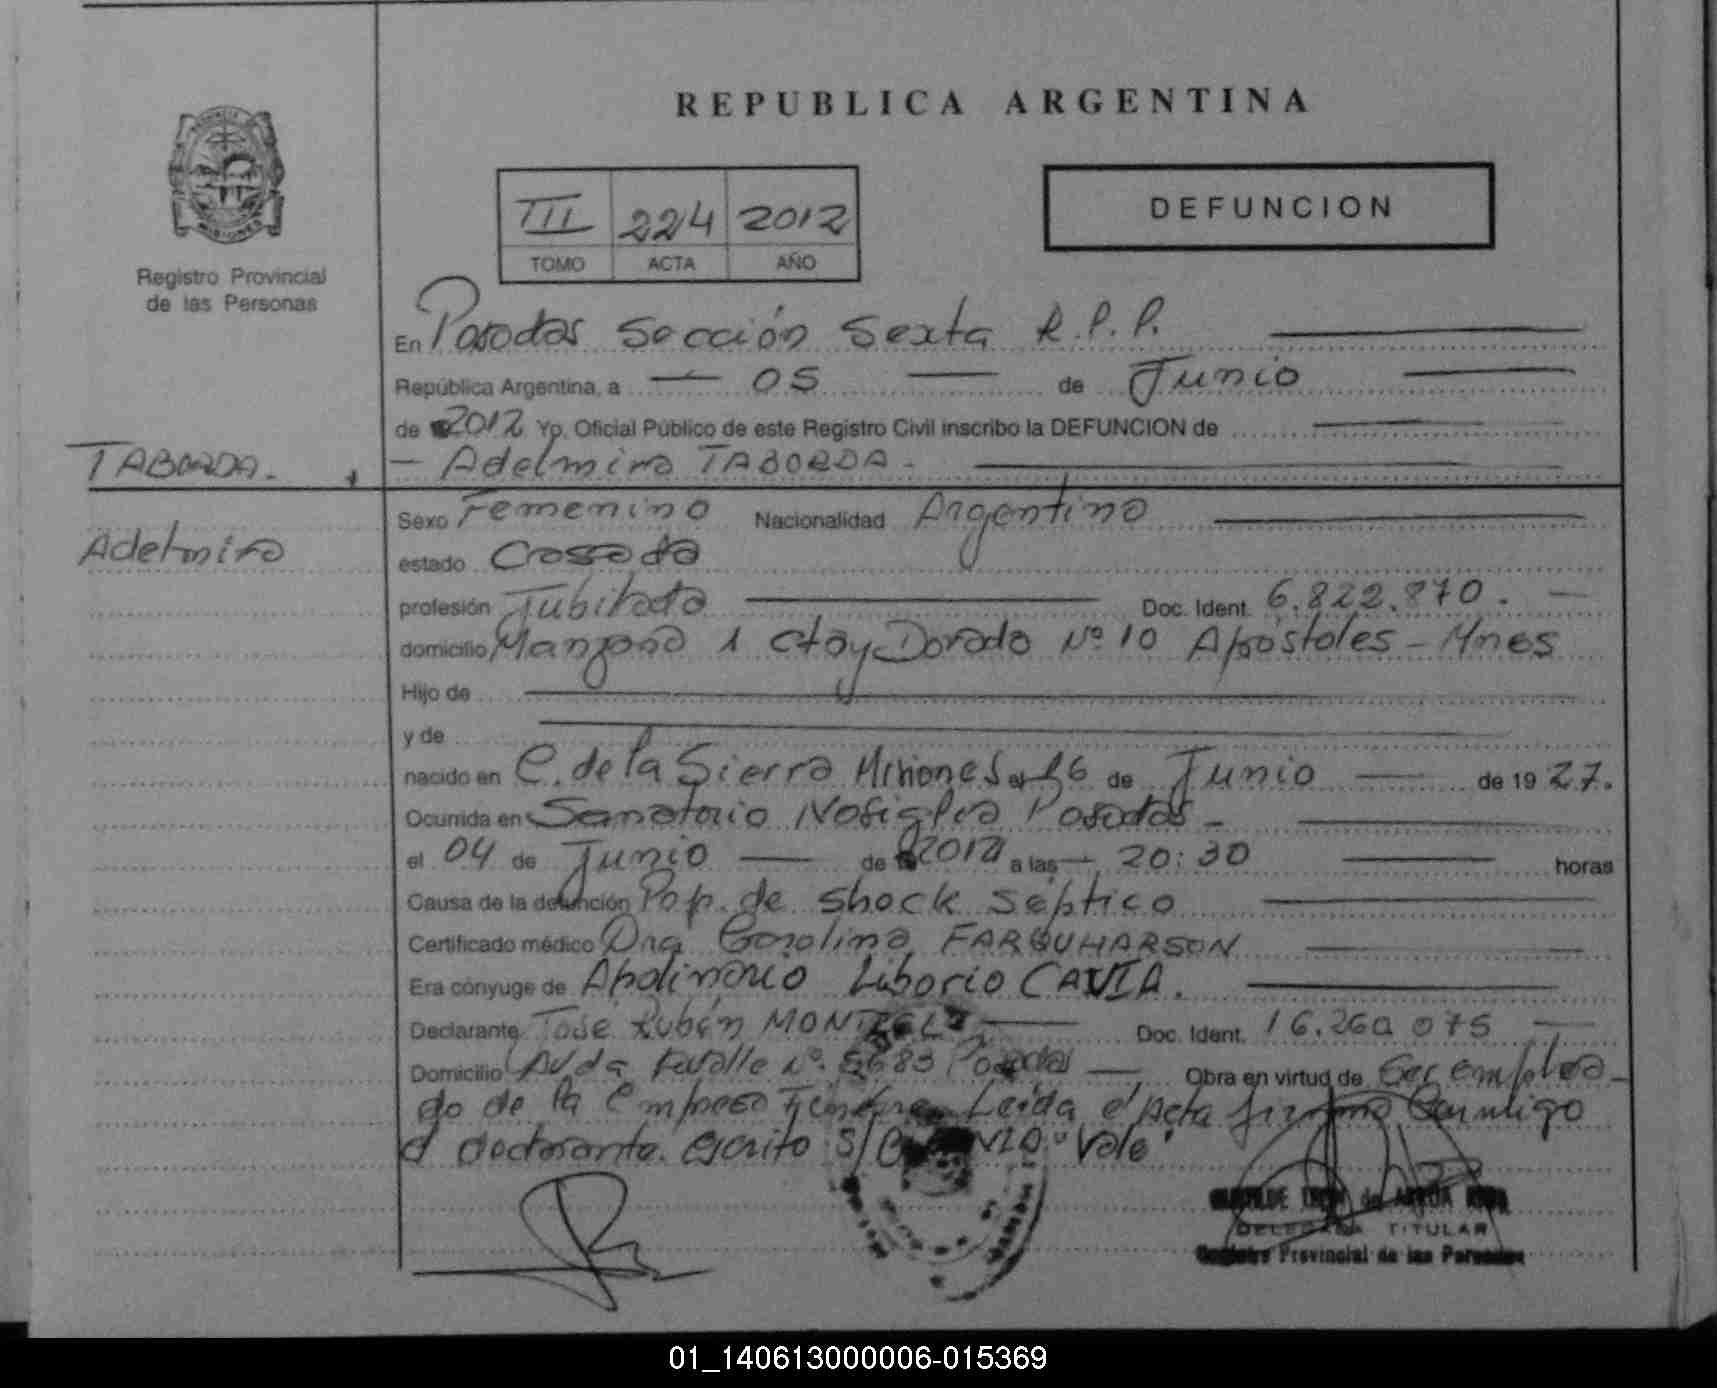 REPUBLICA ARGENTINA
III 224 2012
TOMO ACTA AÑO
DEFUNCION
Registro Provincial
de las Personas
En Posadas Sección Sexta R.P.P.
República Argentina, a 05 de Junio
de 2012 Yo, Oficial Público de este Registro Civil inscribo la DEFUNCION de
TABORDA.
- Adelmira TABORDA.
Adelmira
Sexo Femenino Nacionalidad Argentina
estado Casada
profesión Jubilada Doc. Ident. 6.822.870.
domicilio Manzana 1 Dorado Nº 10 Apóstoles - Mnes
Hijo de
y de
nacido en C. de la Sierra Misiones el 16 de Junio de 1927.
Ocurrida en Sanatorio Nosiglia Posadas -
el 04 de Junio de 2012 a las 20:30 horas
Causa de la defunción Pop. de Shock Séptico
Certificado médico Dra Carolina FARQUHARSON
Era cónyuge de Apolinario Liborio CAVIA.
Declarante José Rubén Doc. Ident. 16.260.075
Domicilio Avda Nº Posadas Obra en virtud de Ser emplea-
do de la Empresa Fúnebre Leída el Acta firma conmigo
el declarante. escrito S/ "Vale"
de
DELEGADA TITULAR
Registro Provincial de las Personas
01_140613000006-015369